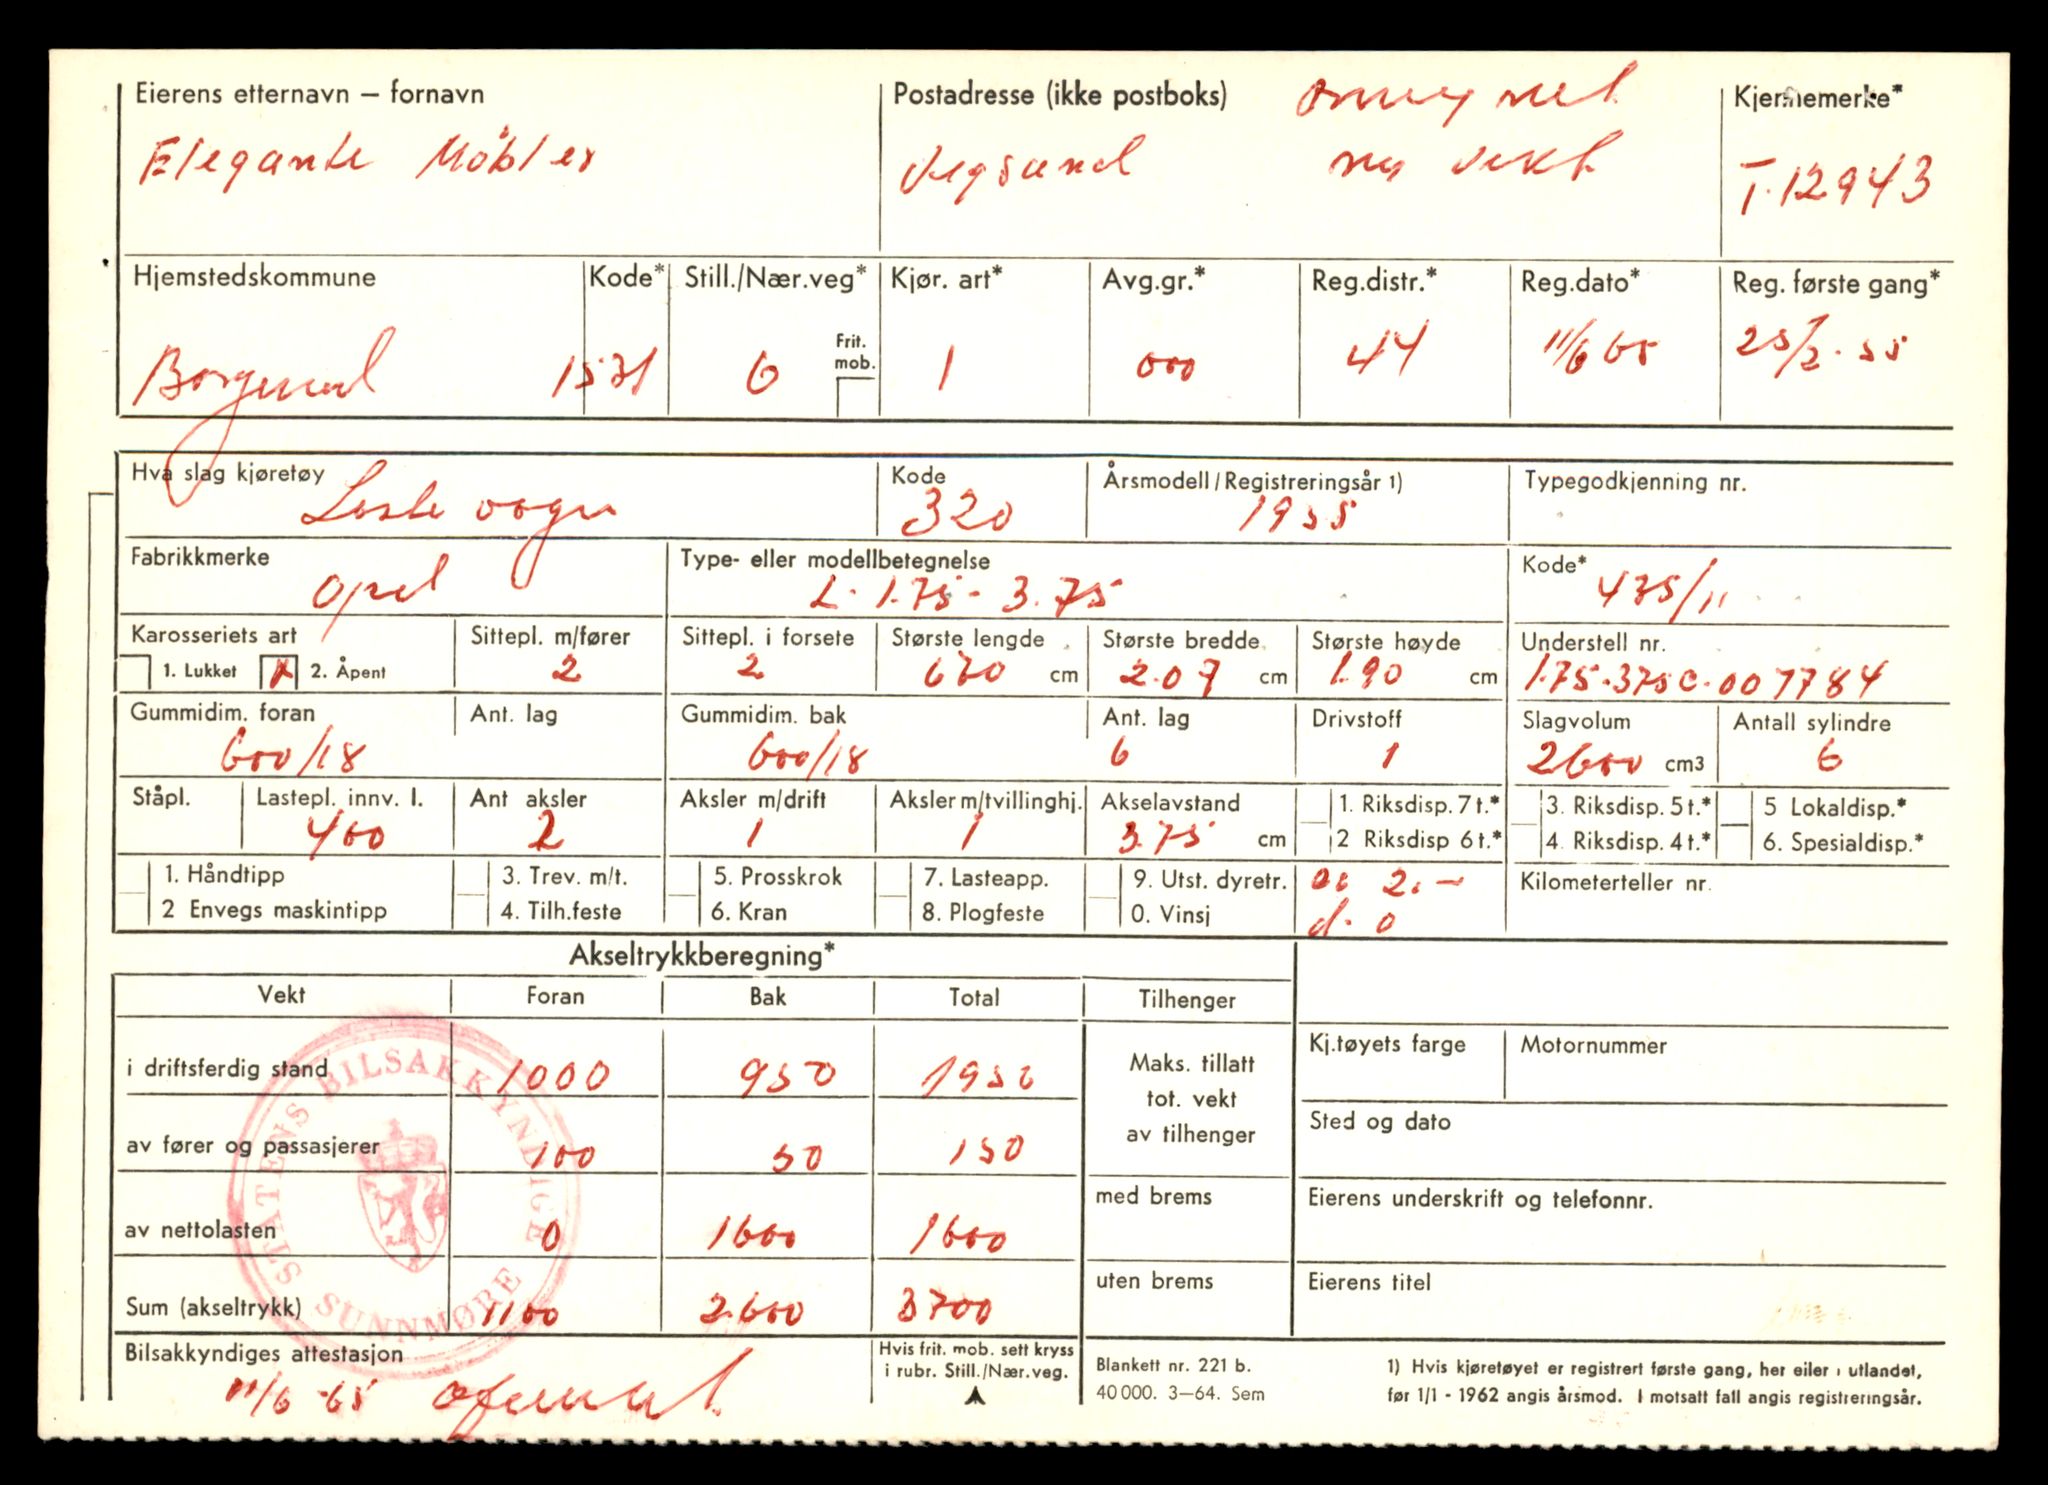 Eierens etternavn – fornavn Postadresse (ikke postboks) Kjennemerke*
Elegante Møbler Vegsund ny vekt T-12943
Hjemstedskommune Kode* Still./Nær.veg* Kjør. art* Avg.gr.* Reg.distr.* Reg.dato* Reg. første gang*
Frit. mob.
Borgund 1531 6 1 000 44 11/6 65 25/2-55
Hva slag kjøretøy Kode Årsmodell/Registreringsår 1) Typegodkjenning nr.
Laste vogn 320 1955
Fabrikkmerke Type- eller modellbetegnelse Kode*
Opel L. 1.75-3.75 435/11
Karosseriets art Sittepl. m/fører Sittepl. i forsete Største lengde Største bredde Største høyde Understell nr.
1. Lukket X 2. Åpent 2 2 670 cm 2.07 cm 1.90 cm 1.75-375C-007784
Gummidim. foran Ant. lag Gummidim. bak Ant. lag Drivstoff Slagvolum Antall sylindre
600/18 600/18 6 1 2600 cm3 6
Ståpl. Lastepl. innv. l. Ant aksler Aksler m/drift Aksler m/tvillinghj. Akselavstand 1. Riksdisp. 7 t.* 3. Riksdisp. 5 t.* 5 Lokaldisp.*
400 2 1 1 3.75 cm 2 Riksdisp 6 t.* 4. Riksdisp. 4 t.* 6. Spesialdisp.*
1. Håndtipp 3. Trev. m/t. 5. Prosskrok 7. Lasteapp. 9. Utst. dyretr. 2.- Kilometerteller nr.
2 Envegs maskintipp 4. Tilh.feste 6. Kran 8. Plogfeste 0. Vinsj d. 0
Akseltrykkberegning*
Vekt Foran Bak Total Tilhenger
i driftsferdig stand 1000 950 1950 Maks. tillatt tot. vekt av tilhenger Kj.tøyets farge Motornummer
av fører og passasjerer 100 50 150 Sted og dato
av nettolasten 0 1600 1600 med brems Eierens underskrift og telefonnr.
Sum (akseltrykk) 1100 2600 3700 uten brems Eierens titel
STATENS BILSAKKYNDIGE SUNNMØRE
Bilsakkyndiges attestasjon Hvis frit. mob. sett kryss i rubr. Still./Nær.veg.
11/6-65
Blankett nr. 221 b.
40 000. 3–64. Sem
1) Hvis kjøretøyet er registrert første gang, her eller i utlandet,
før 1/1 - 1962 angis årsmod. I motsatt fall angis registreringsår.